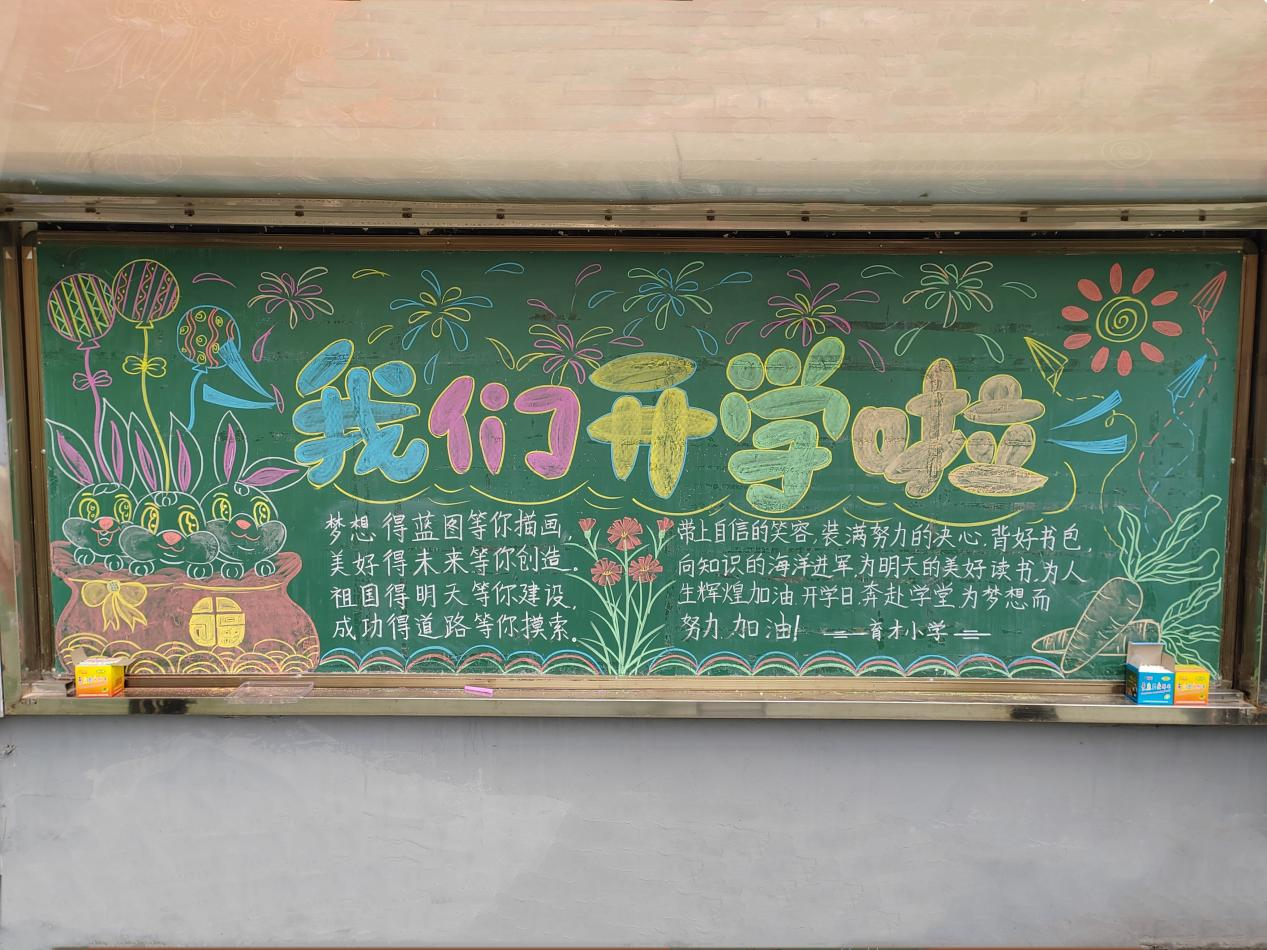 我们开学啦
梦想得蓝图等你描画,
美好得未来等你创造.
祖国得明天等你建设,
成功得道路等你摸索.
带上自信的笑容,装满努力的决心,背好书包,
向知识的海洋进军为明天的美好读书,为人
生辉煌加油.开学日,奔赴学堂为梦想而
努力,加油!——育才小学——